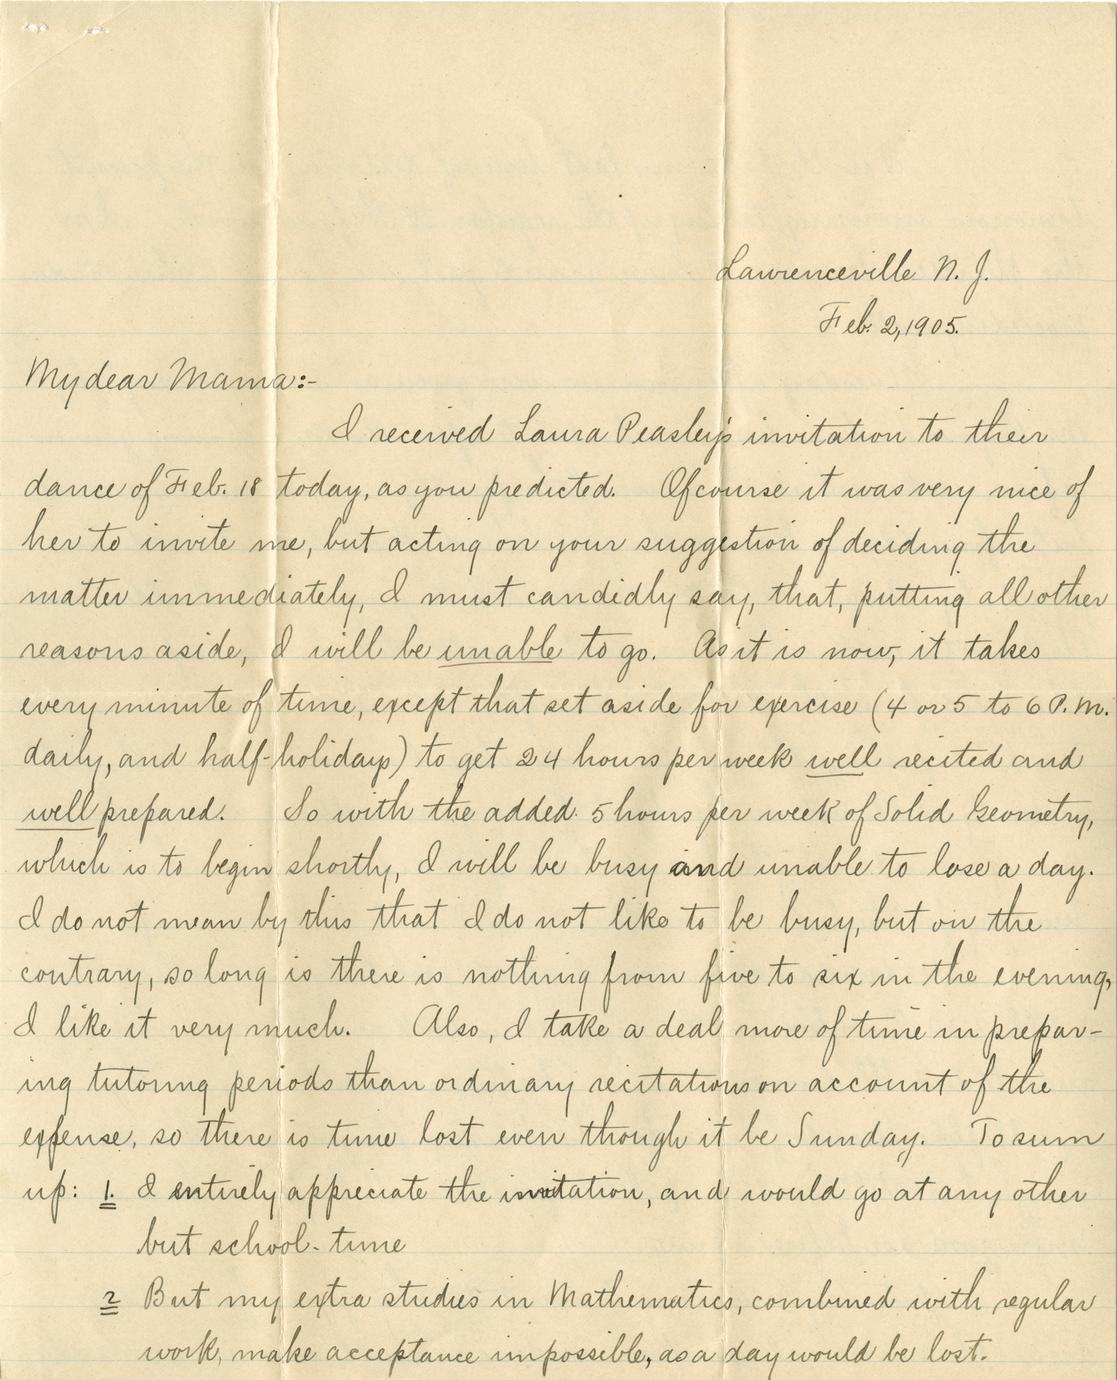 Lawrenceville N. J.
Feb. 2, 1905.
My dear Mama:-
I received Laura Peasley's invitation to their
dance of Feb. 18 today, as you predicted. Of course it was very nice of
her to invite me, but acting on your suggestion of deciding the
matter immediately, I must candidly say, that, putting all other
reasons aside, I will be unable to go. As it is now, it takes
every minute of time, except that set aside for exercise (4 or 5 to 6 P.M.
daily, and half-holidays) to get 24 hours per week well recited and
well prepared. So with the added 5 hours per week of Solid Geometry,
which is to begin shortly, I will be busy and unable to lose a day.
I do not mean by this that I do not like to be busy, but on the
contrary, so long is there is nothing from five to six in the evening,
I like it very much. Also, I take a deal more of time in prepar-
ing tutoring periods than ordinary recitations on account of the
expense, so there is time lost even though it be Sunday. To sum
up: 1. I entirely appreciate the invitation, and would go at any other
but school-time
2 But my extra studies in Mathematics, combined with regular
work, make acceptance impossible, as a day would be lost.